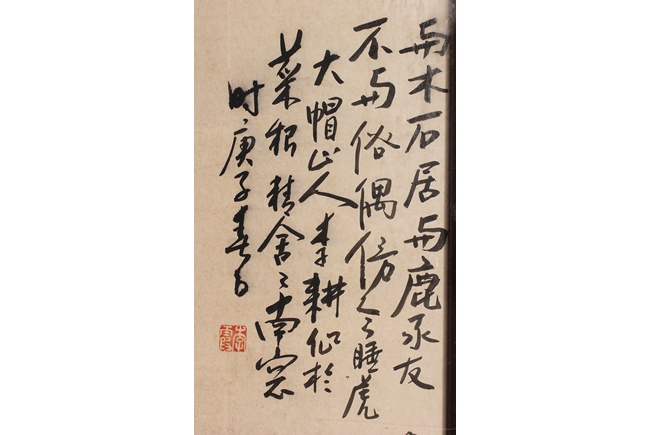 与木石居与鹿豕友
不与俗偶傍之睡虎
大帽山人李耕作於
菜根精舍之南窓
时庚子春日
李耕